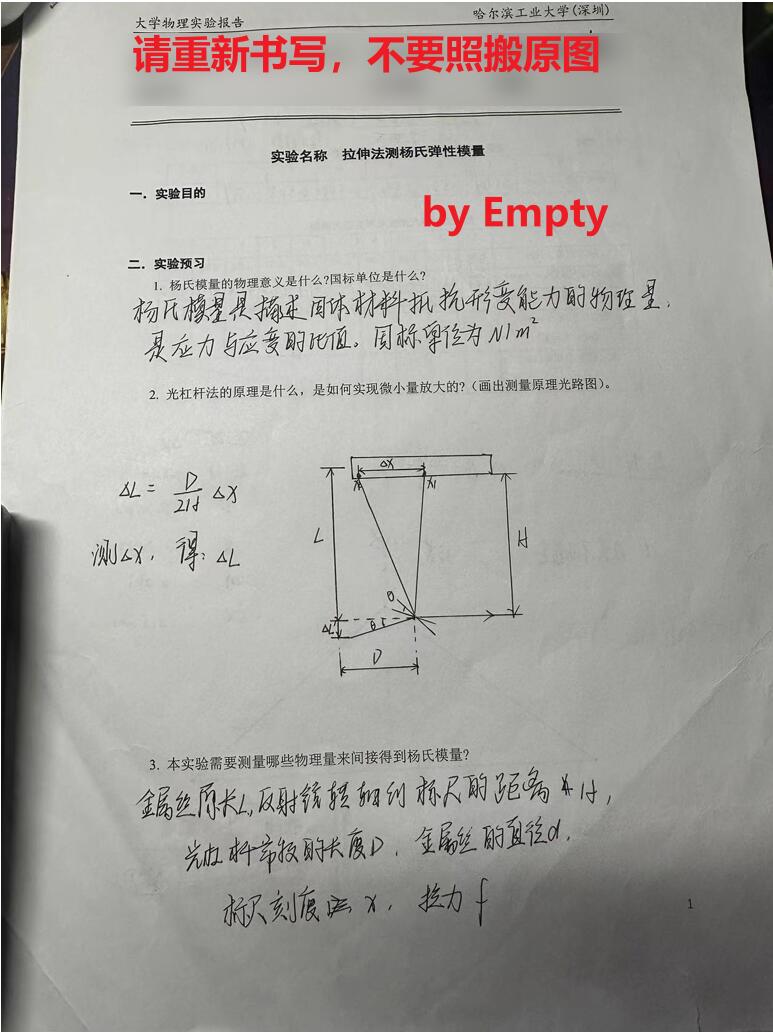 大学物理实验报告 哈尔滨工业大学(深圳)
请重新书写，不要照搬原图
实验名称 拉伸法测杨氏弹性模量
一．实验目的
by Empty
二．实验预习
1. 杨氏模量的物理意义是什么?国标单位是什么?
杨氏模量是描述固体材料抵抗形变能力的物理量，
是应力与应变的比值。国标单位为 N/m²
2. 光杠杆法的原理是什么，是如何实现微小量放大的?（画出测量原理光路图）。
ΔX
X₁
ΔL = D/2H ΔX
L
H
测ΔX，得：ΔL
θ
ΔL
θ
D
3. 本实验需要测量哪些物理量来间接得到杨氏模量?
金属丝原长L，反射镜转轴到标尺的距离 H，
光杠杆常数的长度D，金属丝的直径d，
标尺刻度 x，拉力 f
1